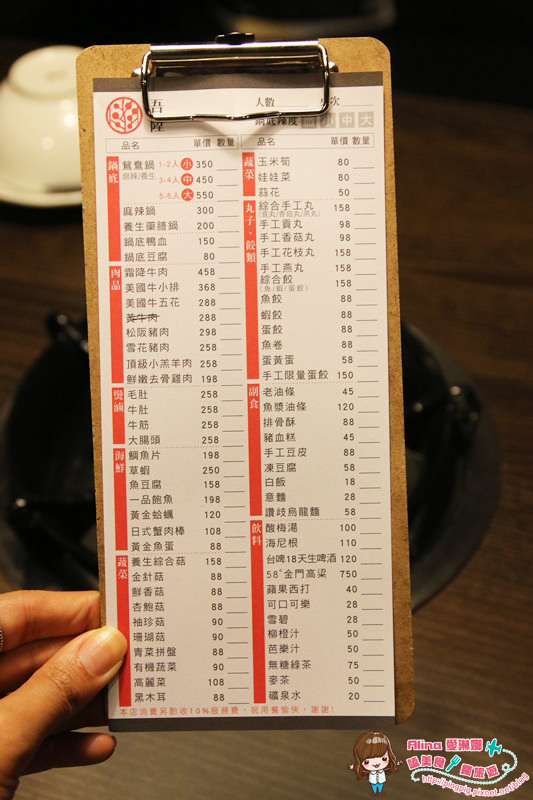 吾
陞
人數
次
鍋底辣度 小 中 大
品名 單價 數量
鍋底
鴛鴦鍋 麻辣/養生 1-2人 小 350
3-4人 中 450
5-6人 大 550
麻辣鍋 300
養生藥膳鍋 200
鍋底鴨血 150
鍋底豆腐 80
肉品
霜降牛肉 458
美國牛小排 368
美國牛五花 288
黃牛肉 288
松阪豬肉 298
雪花豬肉 258
頂級小羔羊肉 258
鮮嫩去骨雞肉 198
燙滷
毛肚 258
牛肚 258
牛筋 258
大腸頭 258
海鮮
鯛魚片 198
草蝦 250
魚豆腐 158
一品鮑魚 198
黃金蛤蠣 120
日式蟹肉棒 108
黃金魚蛋 88
蔬菜
養生綜合菇 158
金針菇 88
鮮香菇 88
杏鮑菇 88
袖珍菇 90
珊瑚菇 90
青菜拼盤 88
有機蔬菜 90
高麗菜 108
黑木耳 88
品名 單價 數量
蔬菜
玉米筍 80
娃娃菜 80
蒜花 50
丸子、餃類
綜合手工丸 158
(貢丸/香菇丸/燕丸)
手工貢丸 98
手工香菇丸 98
手工花枝丸 158
手工燕丸 158
綜合餃 158
(魚/蝦/蛋餃)
魚餃 88
蝦餃 88
蛋餃 88
魚卷 88
蛋黃蛋 58
手工限量蛋餃 150
副食
老油條 45
魚漿油條 120
排骨酥 88
豬血糕 45
手工豆皮 88
凍豆腐 58
白飯 18
意麵 28
讚岐烏龍麵 58
飲料
酸梅湯 100
海尼根 110
台啤18天生啤酒 120
58°金門高梁 750
蘋果西打 40
可口可樂 28
雪碧 28
柳橙汁 50
芭樂汁 50
無糖綠茶 75
麥茶 50
礦泉水 20
本店消費另酌收10%服務費，祝用餐愉快，謝謝!
Alina 愛琳娜
嗑美食 買旅遊
http://pingpig.pixnet.net/blog